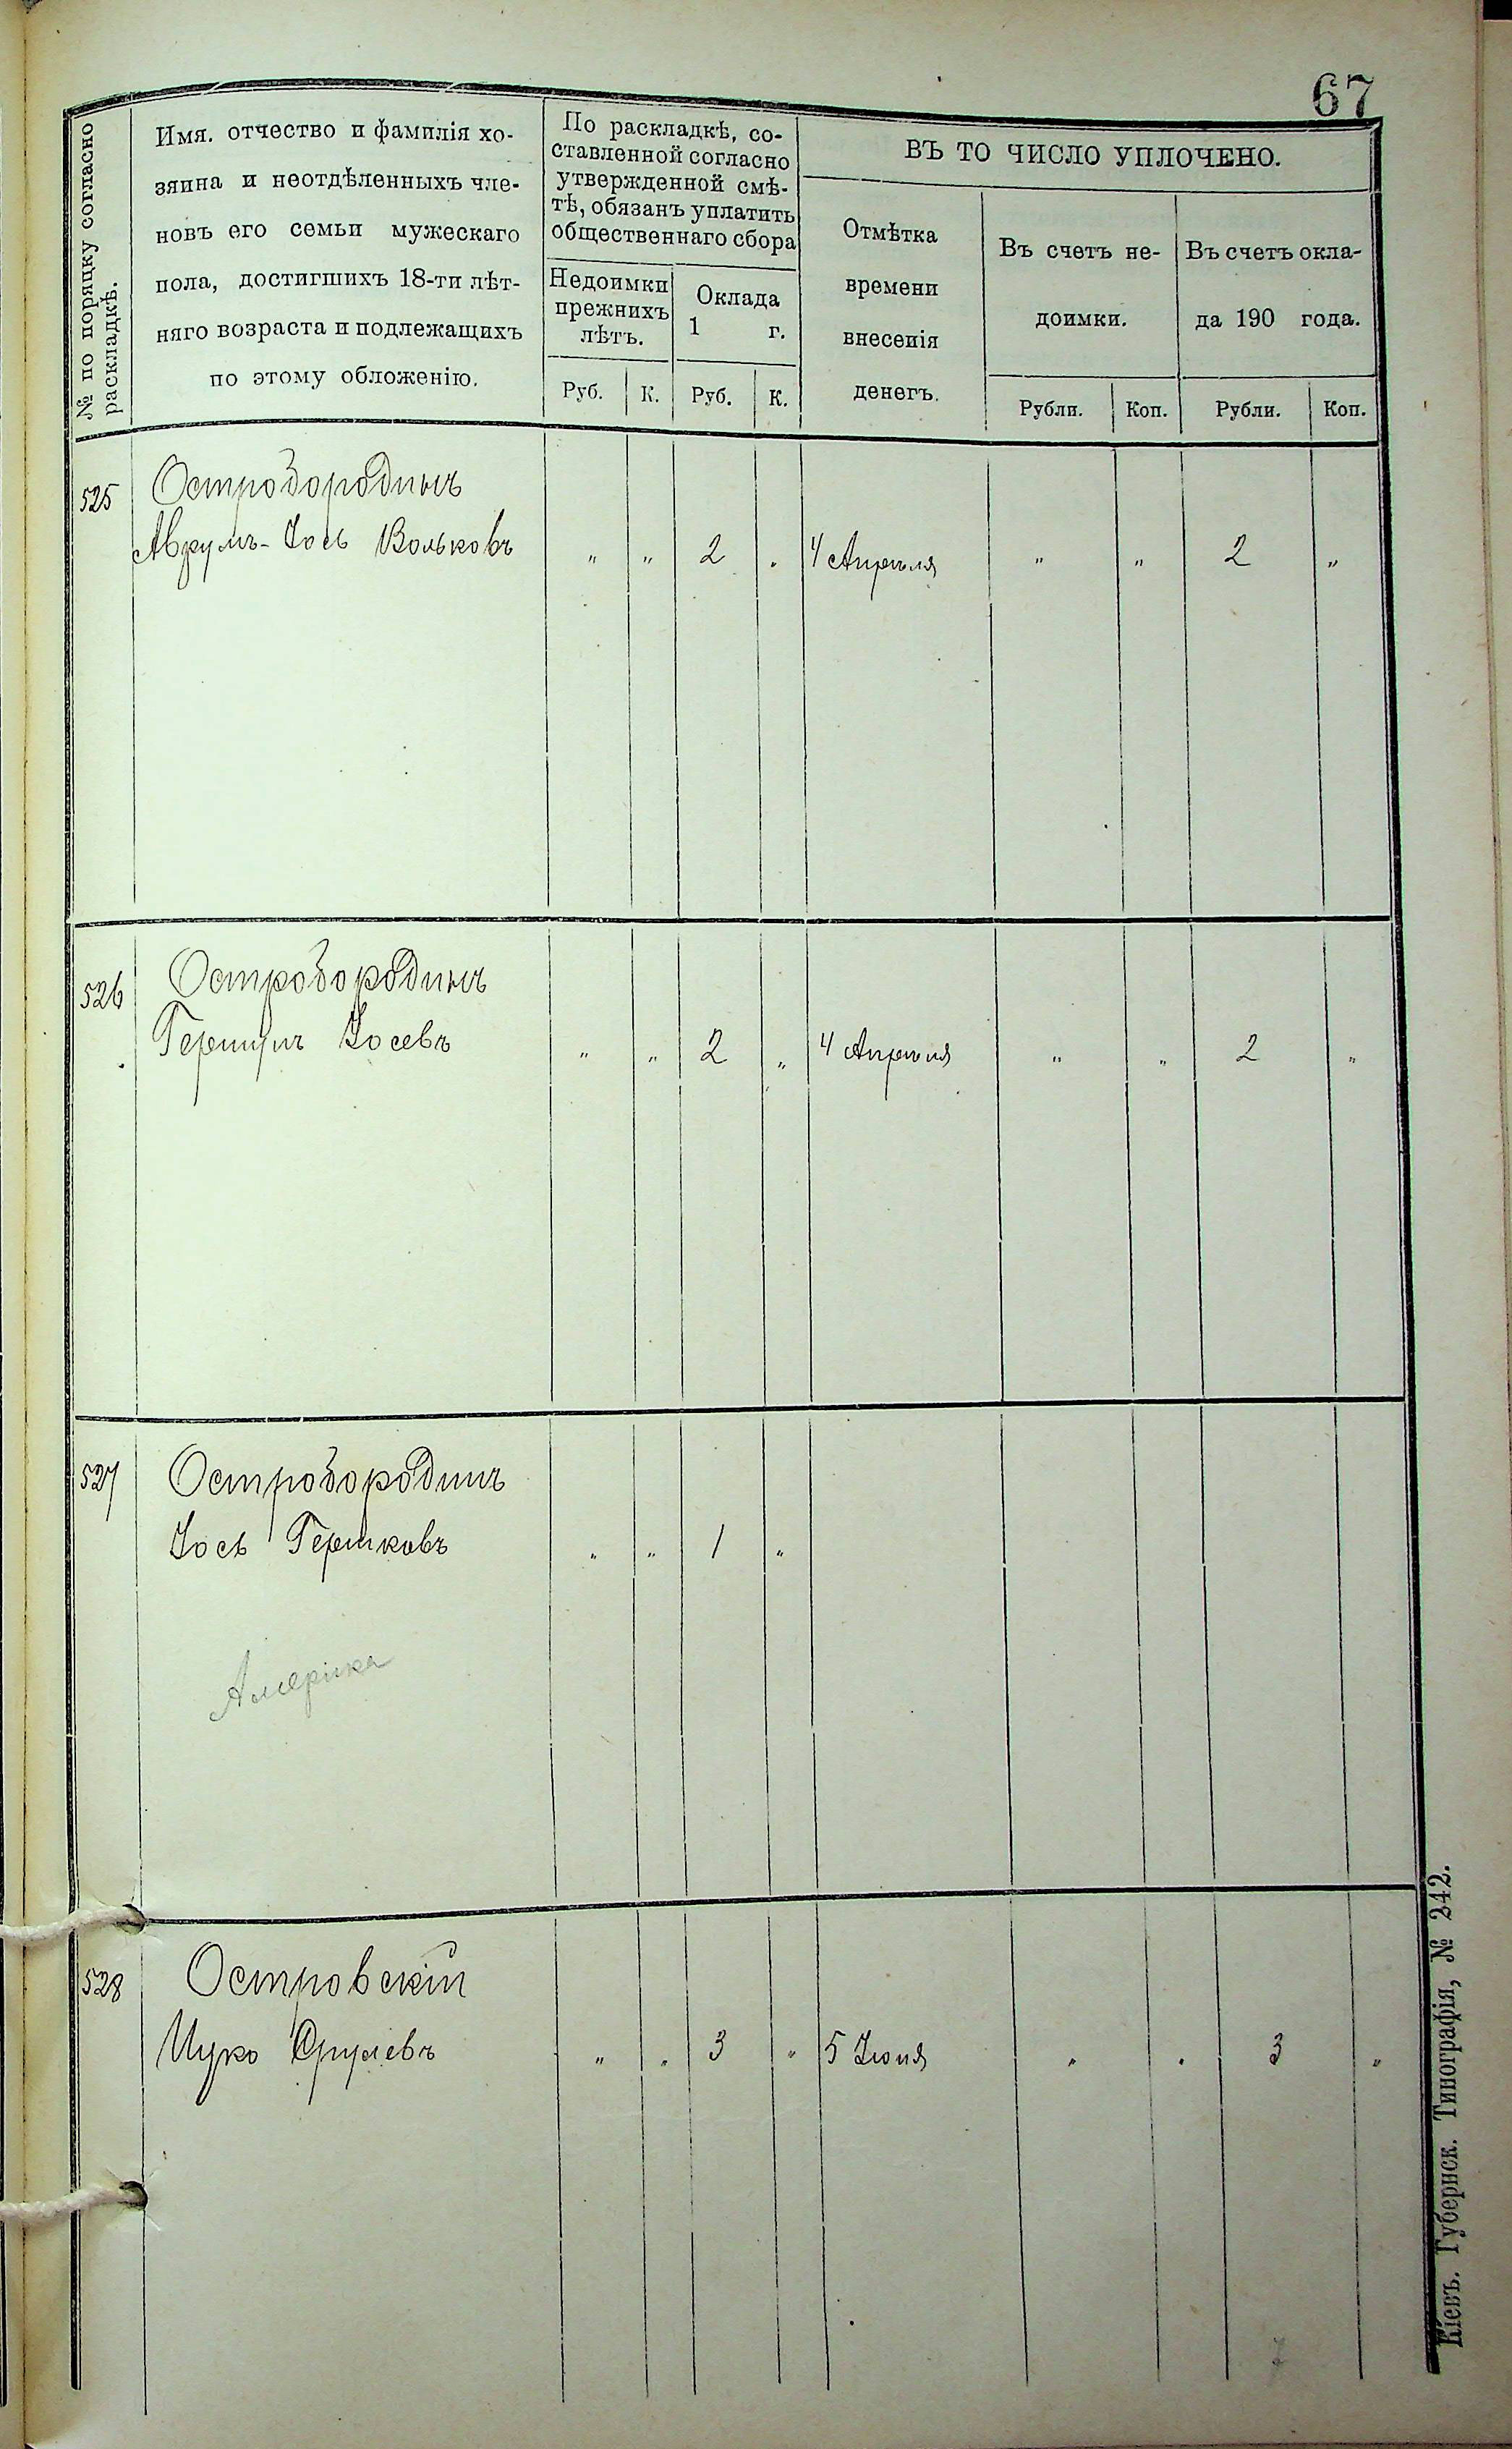 67
№ по порядку согласно
раскладкѣ.
Имя. отчество и фамилія хо-
зяина и неотдѣленныхъ чле-
новъ его семьи мужескаго
пола, достигшихъ 18-ти лѣт-
няго возраста и подлежащихъ
по этому обложенію.
По раскладкѣ, со-
ставленной согласно
утвержденной смѣ-
тѣ, обязанъ уплатить
общественнаго сбора
Недоимки
прежнихъ
лѣтъ.
Оклада
1 г.
Руб. К. Руб. К.
ВЪ ТО ЧИСЛО УПЛОЧЕНО.
Отмѣтка
времени
внесенія
денегъ.
Въ счетъ не-
доимки.
Въ счетъ окла-
да 190 года.
Рубли. Коп. Рубли. Коп.
525 Остробородынъ
Аврумъ-Іось Вольковъ " " 2 " 4 Апреля " " 2 "
526 Остробородынъ
Іосевъ " " 2 " 4 Апреля " " 2 "
527 Остробородинъ
Іось Гершковъ " " 1 "
Америка
528 Островскій
Ицко Срулевъ " " 3 " 5 Іюня " " 3 "
Кіевъ. Губернск. Типографія, № 242.